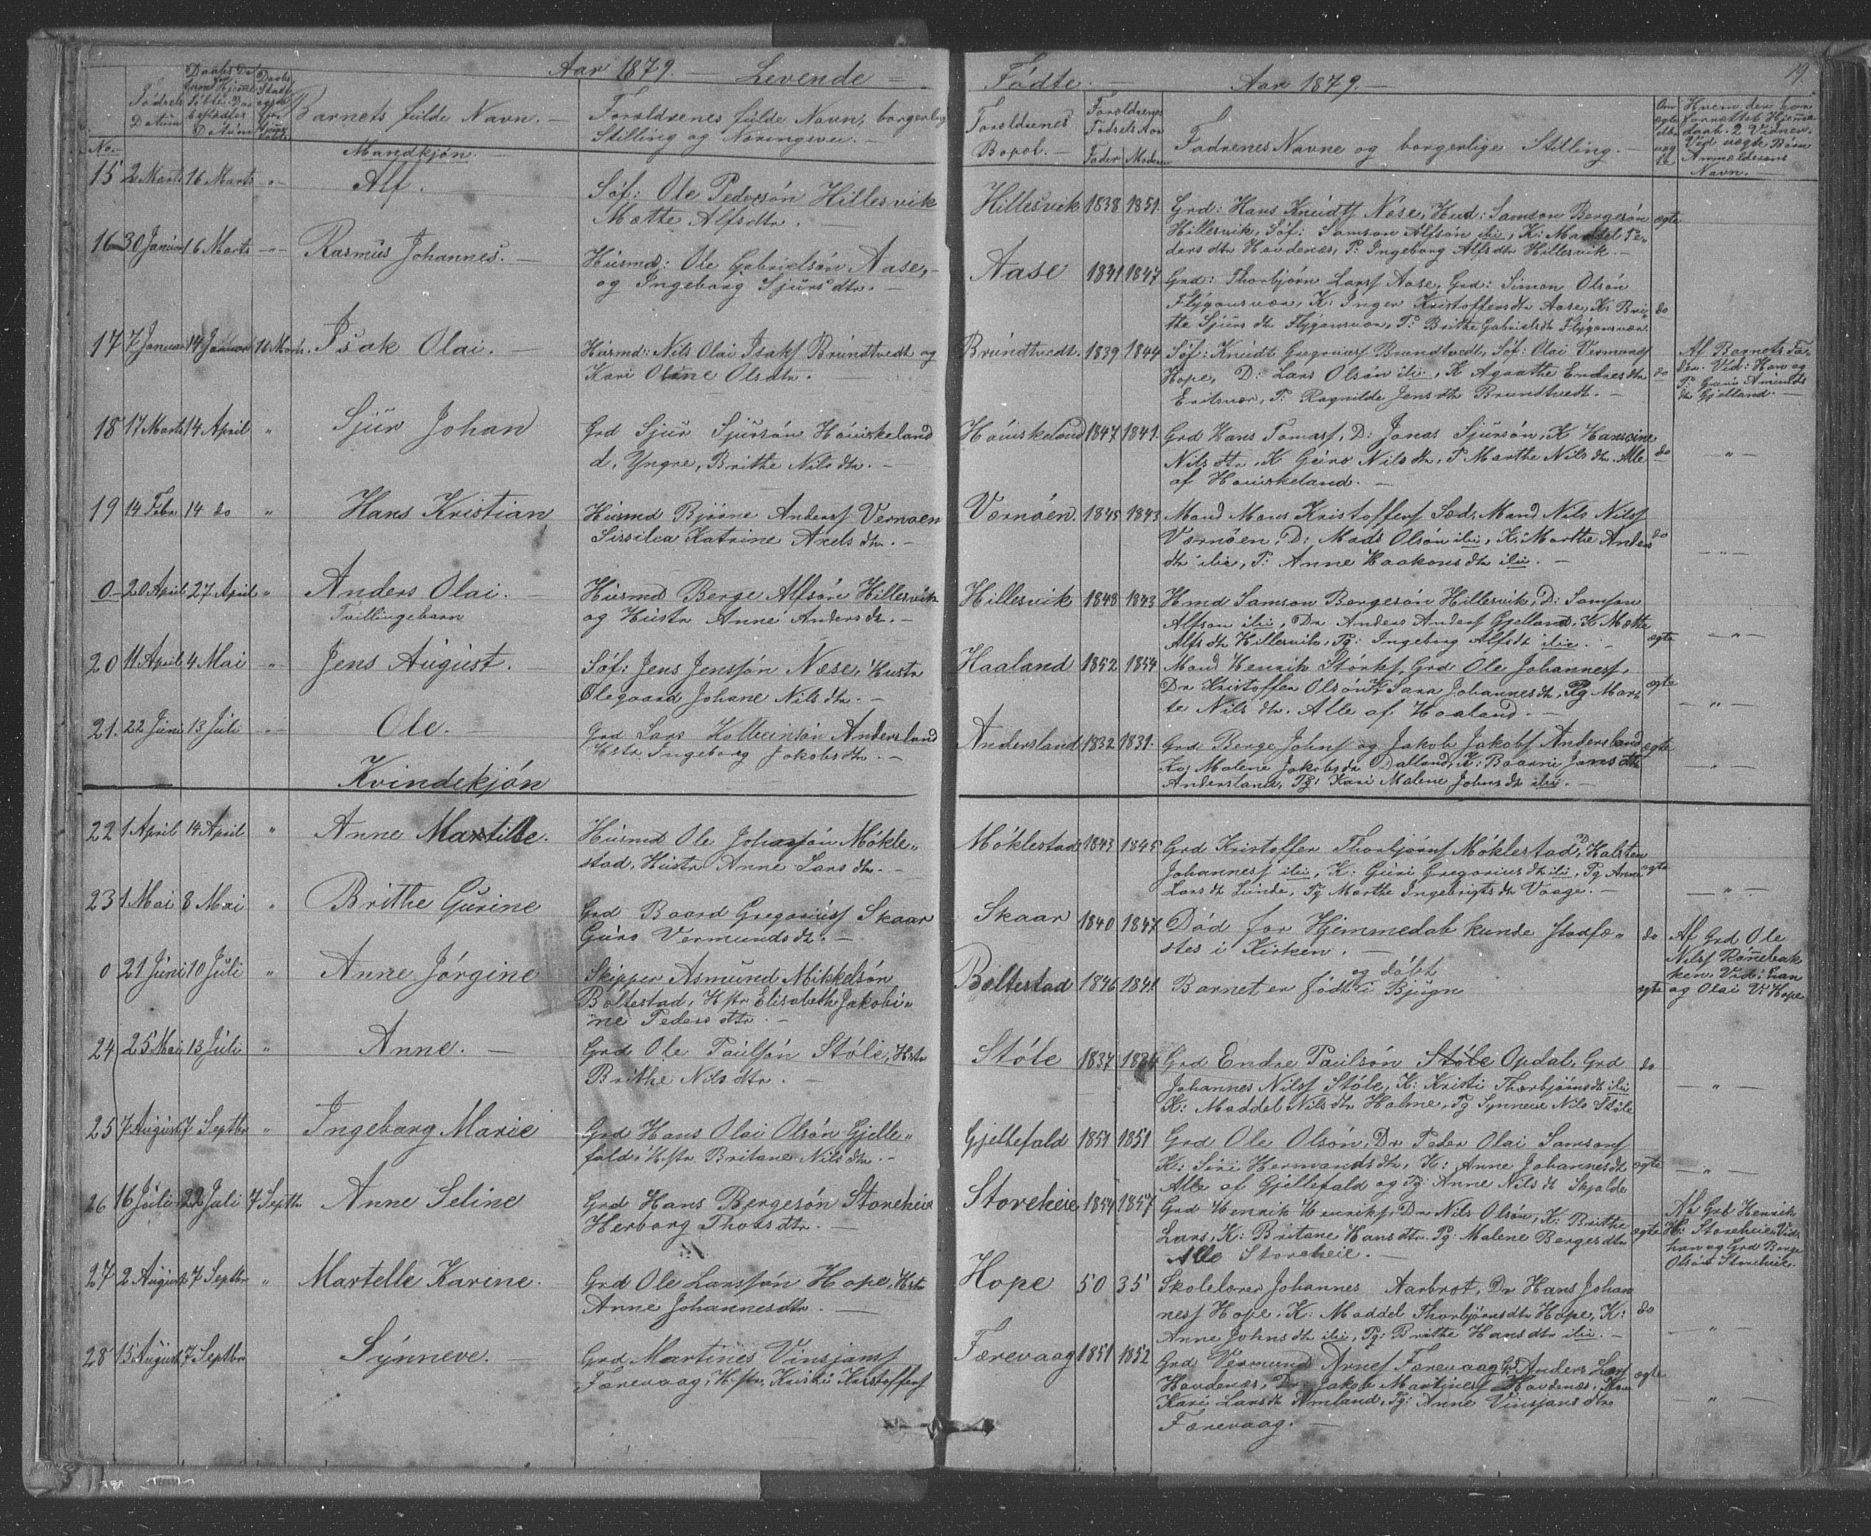 Aar 1879. — Levende =
Fødte. — Aar 1879. —
19.
No.
Fødsels Datum
Barnets fulde Navn. —
Forældrenes fulde Navn, borgerlig
Stilling og Næringsvei
Forældrenes
Bopæl. —
Forældrenes
Fødsels Aar
Fader Moder
Fadrenes Navne og borgerlige Stilling. —
Mandkjøn. —
15 2 Marts 16 Marts " Alf. —
Søf: Ole Pedersøn Hillesvik
Mætte Alfsdtr. —
Hillesvik 1838 1851.
Grd: Hans Knudss Næse, Hud: Samson Bergesøn
Hillesvik, Søf: Samson Alfsøn ibi, K: Maddel Pe-
ders dtr Hovdenæs, P: Ingeborg Alfsdtr Hillesvik. —
ægte
16 30 Januar 16 Marts " Rasmus Johannes. —
Husmd: Ole Gabrielsøn Aase, —
og Ingeborg Sjursdtr. —
Aase 1831 1847
Grd: Thorbjørn Larss Aase, Grd: Simon Olsøn
Flygansvær, K: Inger Kristoffersdtr Aase, K: Bri-
the Sjurs dtr Flygansvær, P: Brithe Gabrielsdtr Flygansvær.
do
17 7 Januar 14 Januar 16 Marts. Isak Olai. —
Husmd: Nils Olai Isakss Brundtvedt og
Kari Oline Olsdtr. —
Brundtvedt. 1839 1844
Søf: Knudt Gregoriuss Brundtvedt, Søf: Olai Vermunss
Hope, D: Lars Olsøn ibi, K Agaathe Endresdtr
Eritsvær, P: Ragnilde Jens dtr Brundtvedt. —
do
Af Barnets Fa-
der. Vid: Han og
P: Guri Amunds
dtr Gjelland. —
18 17 Marts 14 April " Sjur Johan
Grd Sjur Sjursøn Høuskeland
d, Yngre, Brithe Nilsdtr. —
Høuskeland 1847 1841.
Grd Hans Tomass, D: Jonas Sjursøn, K Hansine
Nils dtr, K Guro Nils dtr, P Marthe Nils dtr. Alle
af Høuskeland. —
do
— " —
19 14 Febr 14 do " Hans Kristian
Husmd Bjørne Anderss Vernøen
Sissilea Katrine Axels dtr. —
Værnøen. 1845 1843
Mand Mons Kristofferss Sæd, Mand Nils Nilss
Værnøen, D: Mads Olsøn ibi, K: Marthe Anders
dtr ibi, P: Anne Haakons dtr ibi. —
do
— " —
0 20 April 27 April " Anders Olai. —
Tvillingebarn
Husmd Berge Alfsøn Hillesvik
og Hustr Anne Anders dtr. —
Hillesvik 1848 1843
Hmd Samson Bergesøn Hillesvik, D: Samson
Alfson ibi, Dr Anders Anderss Gjelland, K Mætte
Alfs dtr Hillesvik, Pg: Ingeborg Alfsdtr ibi. —
ægte
— " —
20 11 April 4 Mai " Jens August. —
Søf: Jens Jenssøn Næse, Hustr
Olegaard Johane Nils dtr. —
Haaland 1852 1854
Mand Henrik Størkss, Grd Ole Johanness,
Dr Kristoffer Olsøn, K Sara Johannesdtr, Pg Mar-
te Nils dtr. Alle af Haaland. —
ægte
— " —
21. 22 Juni 13 Juli " Ole. —
Grd Lars Kolbeinsøn Andersland
Hstr Ingeborg Jakobsdtr. —
Andersland 1832 1831.
Grd Berge Johnss og Jakob Jakobss Andersland
K: Malene Jakobsdtr Dalland, K: Baarni Jansdtr
Andersland, Pg: Kari Malene Johns dtr ibi. —
ægte
— " —
Kvindekjøn
22 1 April 14 April " Anne Martille.
Husmd Ole Johansøn Møkle-
stad, Hustr Anne Lars dtr. —
Møklestad 1843 1845
Grd Kristoffer Thorbjørnss Møklestad, D: Halsten
Johanness ibi, K: Guri Gregorius dtr ibi, Pg Anne
Lars dtr Lunde, Pg Marthe Ingebrigts dtr Vaage. —
ægte
— " —
23 1 Mai 8 Mai " Brithe Gurine
Grd Baard Gregoriuss Skaar
Guro Vermundsdtr. —
Skaar 1840 1847
Død før Hjemmedåb kunde stadfæ-
stes i Kirken. —
do
Af Grd Ole
Nilss Rønebak
ken. Vid: Han
og Olai V: Hope
0 21 Juni 10 Juli " Anne Jørgine
Skipper Asmund Mikkelsøn
Boltestad, Hstr Elisabeth Jakobi-
ne Peders dtr. —
Boltestad 1846 1841
Barnet er født og døbt i Bjugn
ægte
24 25 Mai 13 Juli " Anne. —
Grd Ole Paulsøn Støle, Hstr
Brithe Nilsdtr. —
Støle 1837 1834
Grd Endre Paulsøn Støle Opdal, Grd
Johannes Nilss Støle, K: Kristi Thorbjørnsdtr ibi
K: Maddel Nilsdtr Holme, Pg Synneve Nils Støle
do
"
25 7 August 7 Septbr " Ingeborg Marie
Grd Hans Olai Olsøn Gjelle-
fald, Hstr Britane Nils dtr. —
Gjellefald 1851 1851
Grd Ole Olsøn, Dr Peder Olai Samsonss
K: Siri Hermands dtr, K: Anne Johannes dtr
Alle af Gjellefald og Pg: Anne Nils dtr Skjolde
ægte
— " —
26 16 Juli 22 Juli 7 Septbr Anne Seline
Grd Hans Bergesøn Storeheie
Herborg Thorsdtr. —
Storeheie 1854 1857
Grd Henrik Henrikss, Dr Nils Olsøn, K: Brithe
Lars, K: Britane Hansdtr. Pg: Malene Bergesdtr
Alle Storeheie. —
ægte
Af Grd Henrik
H: Storeheie, Vid:
han og Grd Berge
Olsøn Storeheie.
27 2 August 7 Septbr " Martelle Karine.
Grd Ole Larssøn Hope, Hstr
Anne Johannesdtr. —
Hope 50 35
Skolelærer Johannes Aarbrot, Dr Hans Johan
ness Hope, K: Maddel Thorbjørnsdtr Hope, K:
Anne Johns dtr ibi, Pg: Brithe Hans dtr ibi. —
do
— " —
28 15 August 7 Septbr Synneve. —
Grd Martines Vinsjanss
Færevaag, Hstr, Kristi Kristofferss
Færevaag 1851 1852
Grd Vermund Arness Færevaag, Grd Anders Larss
Hovdenæs, Dr: Jakob Martiness Hovdenæs, Kvn
Kari Larsdtr Amland, Pg: Anne Vinsjans dtr
Færevaag. —
ægte
"